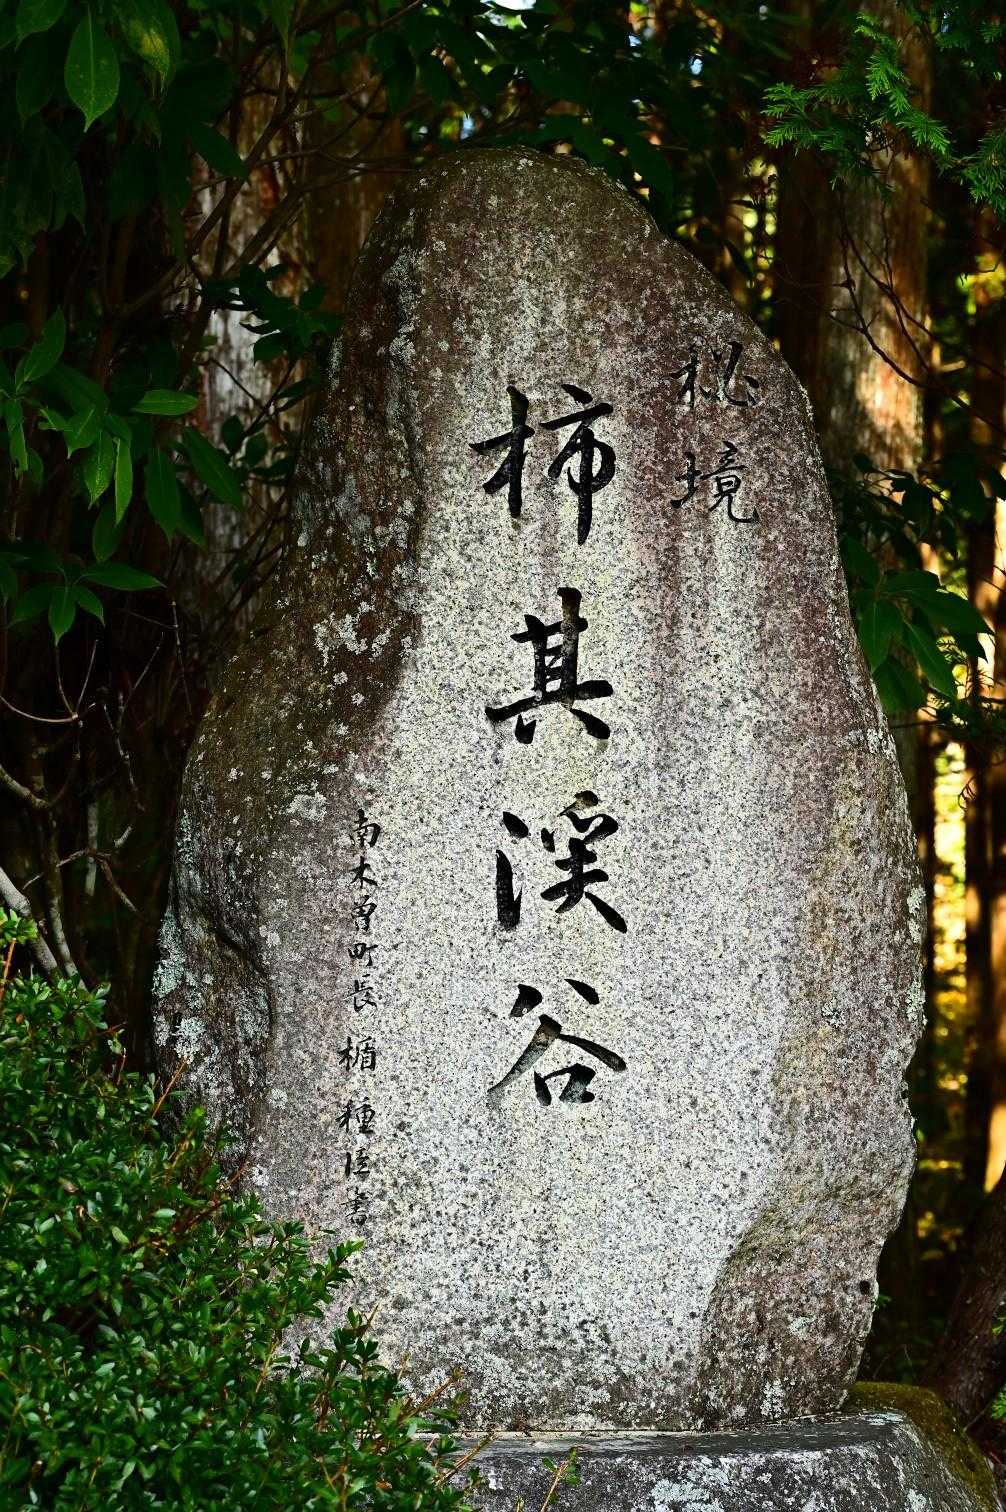 秘境
柿其渓谷
南木曽町長 楯 種臣書